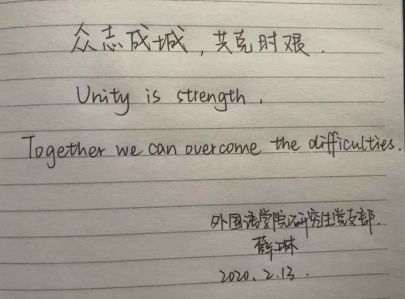 众志成城，共克时艰．
Unity is strength，
Together we can overcome the difficulties．
外国语学院研究生党支部．
琳
2020．2．13．